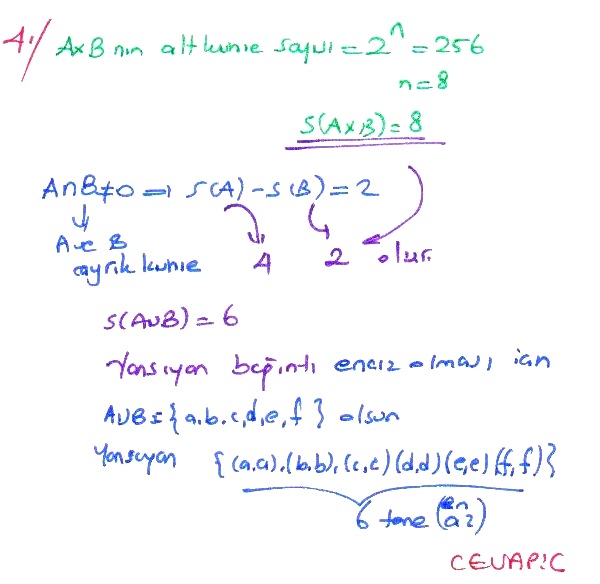 4-) AxB nın alt küme sayısı = 2^n = 256
n=8
S(AxB)=8
A∩B≠0 ⇒ S(A)-S(B)=2
↓
A ve B
ayrık küme
4 2 olur.
S(A∪B)=6
Yansıyan bağıntı en az olması için
A∪B={a,b,c,d,e,f} olsun
Yansıyan {(a,a),(b,b),(c,c)(d,d)(e,e)(f,f)}
6 tane (en az)
CEVAP:C